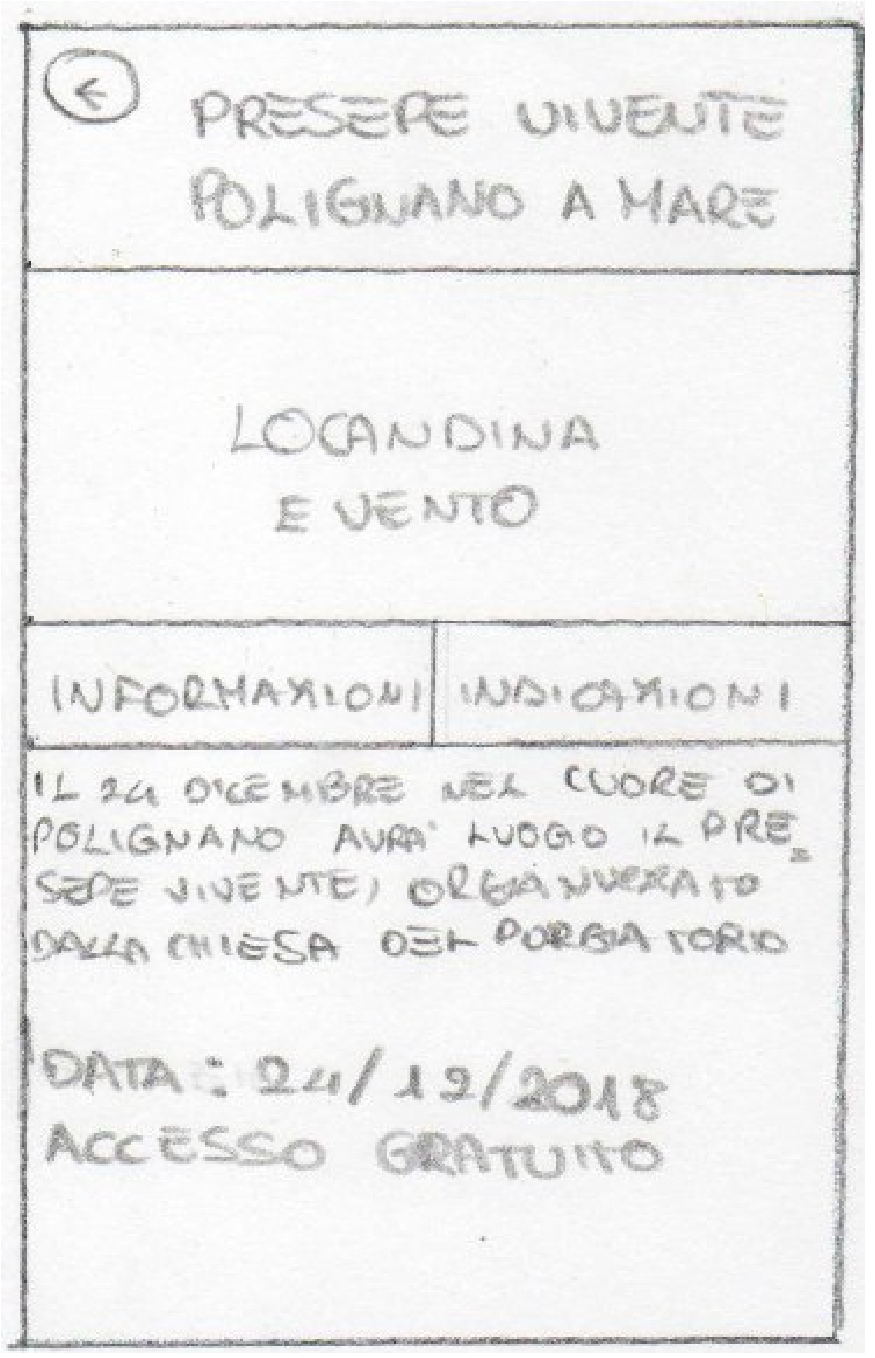 ←
PRESEPE VIVENTE
POLIGNANO A MARE
LOCANDINA
EVENTO
INFORMAZIONI INDICAZIONI
IL 24 DICEMBRE NEL CUORE DI
POLIGNANO AVRA' LUOGO IL PRE=
SEPE VIVENTE, ORGANIZZATO
DALLA CHIESA DEL PURGATORIO
DATA : 24/12/2018
ACCESSO GRATUITO